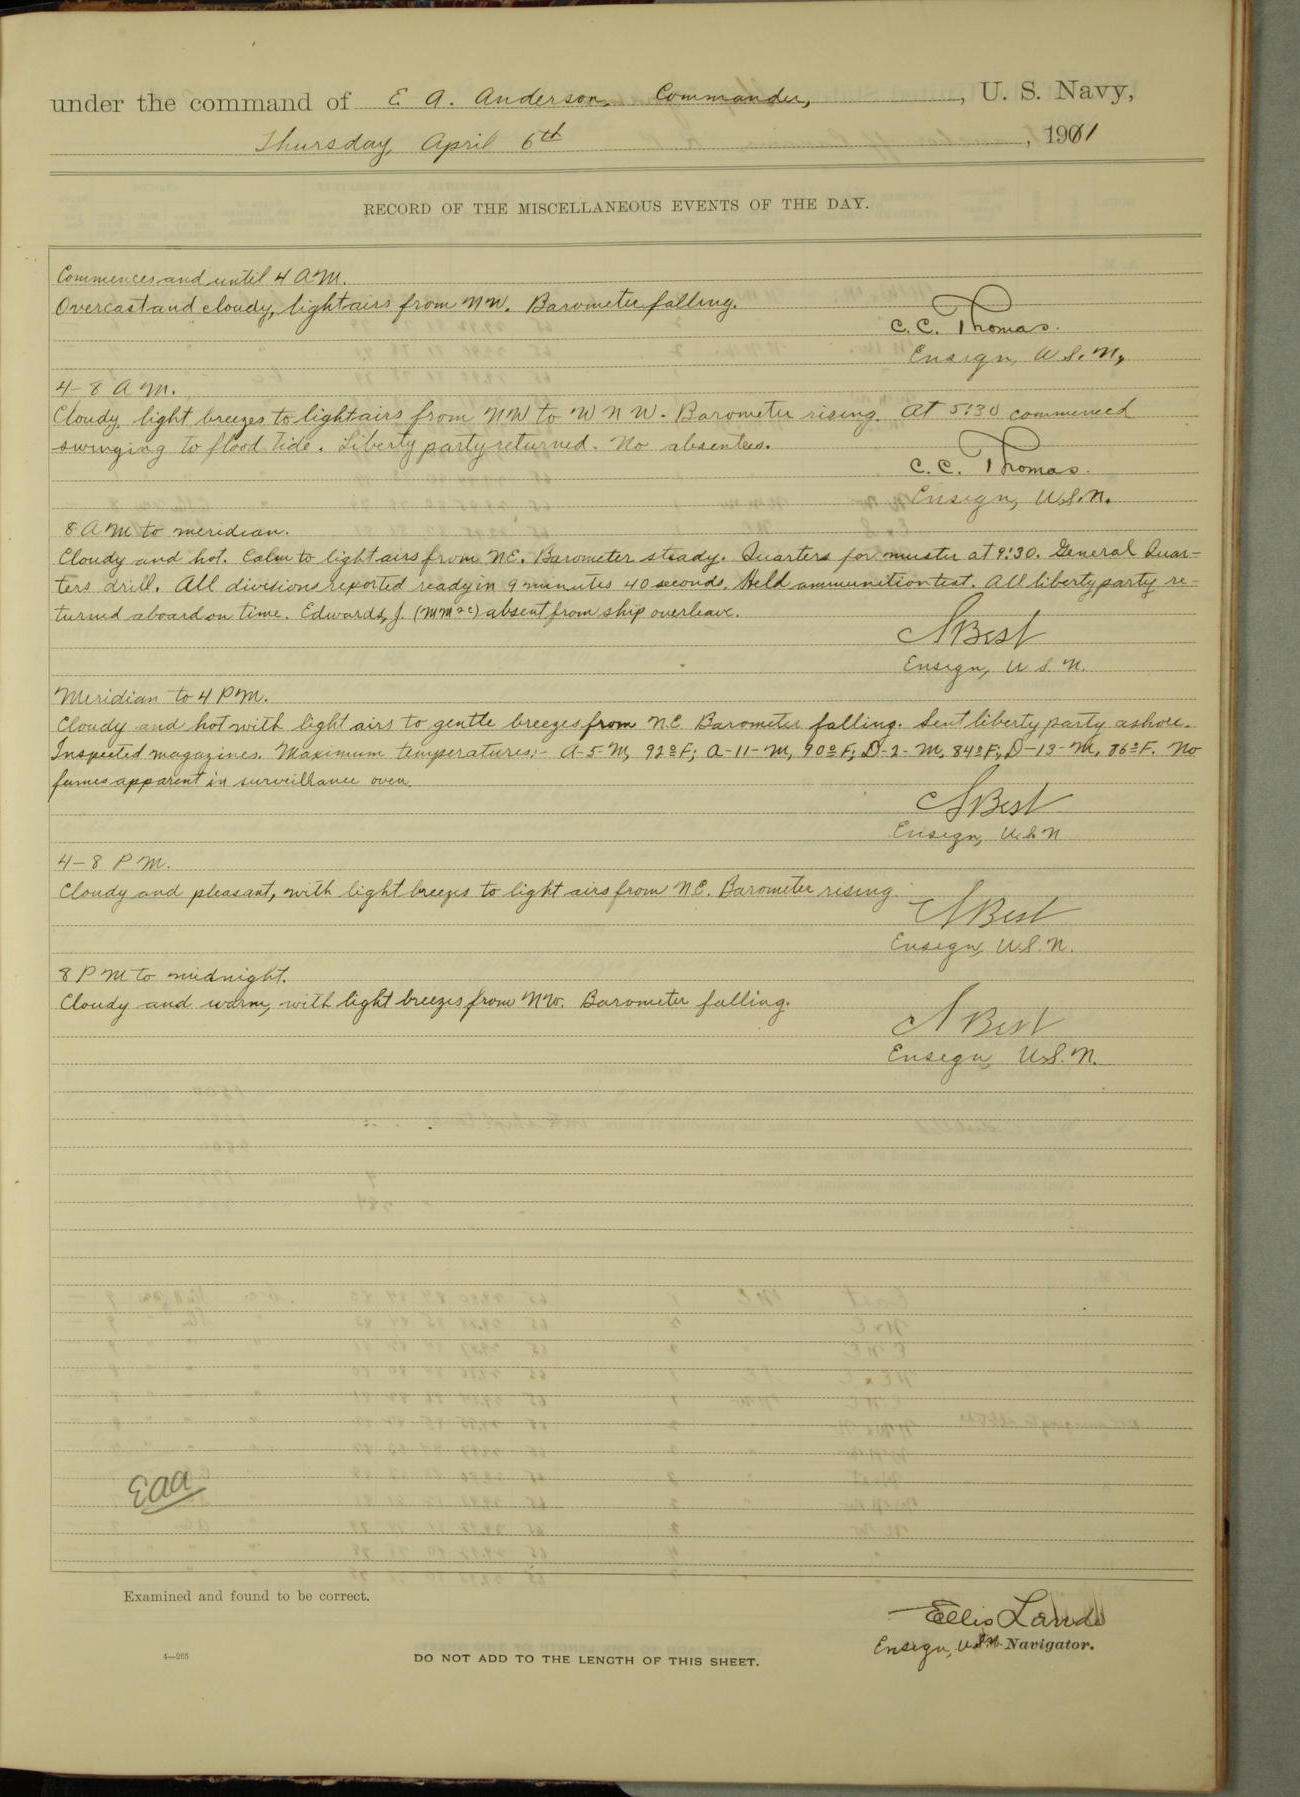 under the command of E. A. Anderson, Commander, , U. S. Navy,
Thursday, April 6th , 1911
RECORD OF THE MISCELLANEOUS EVENTS OF THE DAY.
Commences and until 4 A.M.
Overcast and cloudy, light airs from NW. Barometer falling.
C. C. Thomas.
Ensign, U.S.N.,
4-8 A.M.
Cloudy, light breezes to light airs from NW to WNW. Barometer rising. At 5:30 commenced
swinging to flood tide. Liberty party returned. No absentees.
C. C. Thomas.
Ensign, U.S.N.
8 A M to meridian.
Cloudy and hot. Calm to light airs from NE. Barometer steady. Quarters for muster at 9:30. General Quar-
ters drill. All divisions reported ready in 9 minutes 40 seconds. Held ammunition test. All liberty party re-
turned aboard on time. Edwards, J. (MM2c) absent from ship overleave.
Best
Ensign, U.S.N.
Meridian to 4 P.M.
Cloudy and hot with light airs to gentle breezes from N.E. Barometer falling. Sent liberty party ashore.
Inspected magazines. Maximum temperatures:- A-5-M, 92ºF; A-11-M, 90ºF; D-2-M, 84ºF; D-13-M, 86ºF. No
fumes apparent in surveillance oven.
Best
Ensign, U.S.N
4-8 P.M.
Cloudy and pleasant, with light breezes to light airs from N.E. Barometer rising.
Best
Ensign, U.S.N.
8 P M to midnight.
Cloudy and warm, with light breezes from NW. Barometer falling.
Best
Ensign, U.S.N.
EAA
Examined and found to be correct.
Ellis Lando
Ensign, U.S.N. Navigator.
4—265
DO NOT ADD TO THE LENGTH OF THIS SHEET.